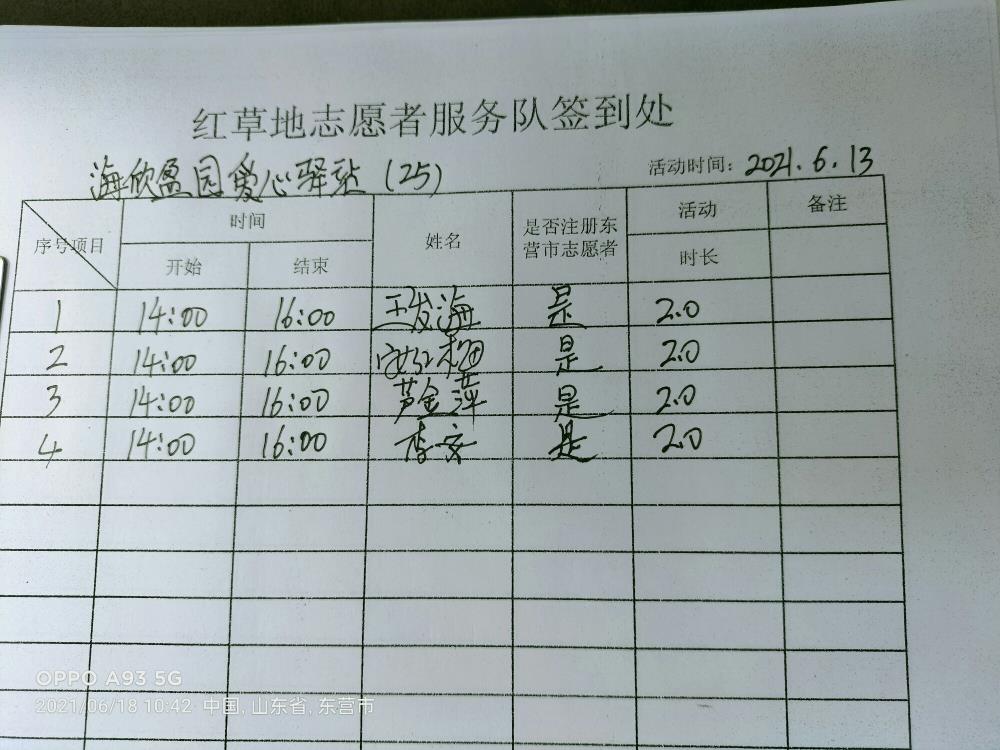 红草地志愿者服务队签到处
海欣盈园爱心驿站(25) 活动时间: 2021.6.13
序号 项目 时间 姓名 是否注册东营市志愿者 活动 备注
开始 结束 时长
1 14:00 16:00 王发海 是 2.0
2 14:00 16:00 是 2.0
3 14:00 16:00 芦金萍 是 2.0
4 14:00 16:00 是 2.0
OPPO A93 5G
2021/06/18 10:42 中国, 山东省, 东营市